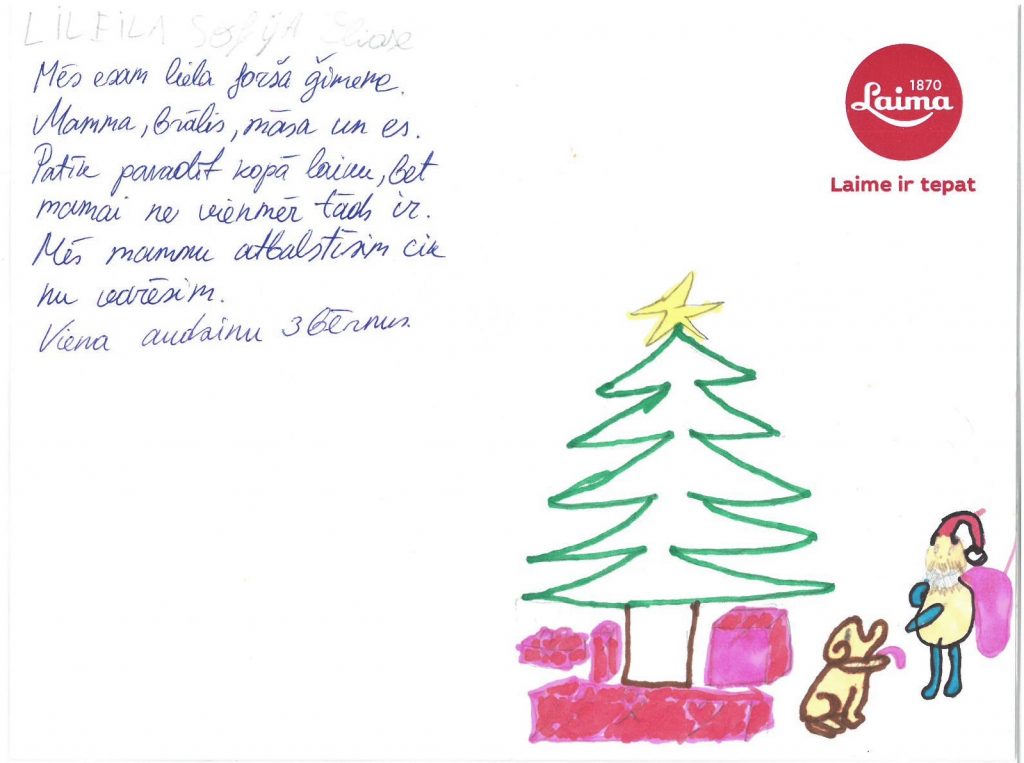 LILEILA Sofija Eliase
Mēs esam liela forša ģimene.
Mamma, brālis, māsa un es.
Patīk pavadīt kopā laiku, bet
mamai ne vienmēr tāds ir.
Mēs mammu atbalstīsim cik
nu varēsim.
Viena audzinu 3 bērnus.
1870
Laima
Laime ir tepat